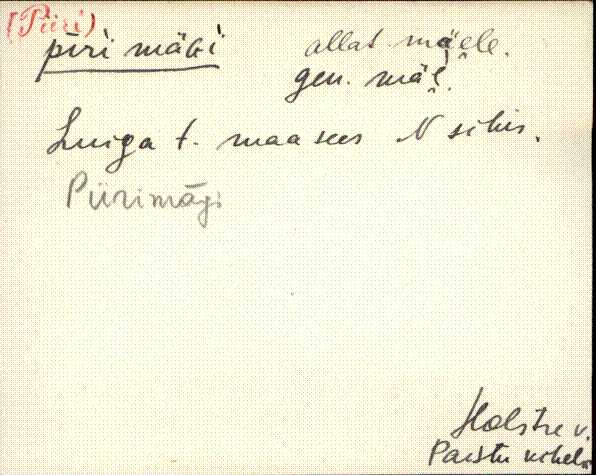 (Piiri)
piri mäGi allat. mäele.
gen. mäe.
Luiga t. maa sees N sihis.
Piirimägi
Holstre v.
Paistu kihelk